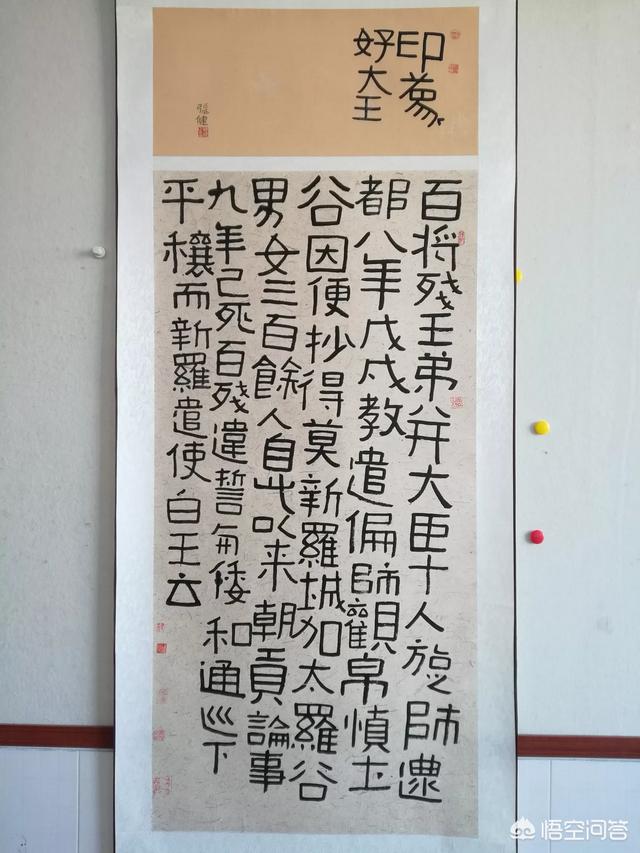 印象
好大王
張健
百将残王弟并大臣十人旋師還
都八年戊戌教遣偏師觀帛慎土
谷因便抄得莫新羅城加太羅谷
男女三百餘人自此以来朝貢論事
九年己亥百残違誓与倭和通巡下
平穰而新羅遣使白王云
悟空问答